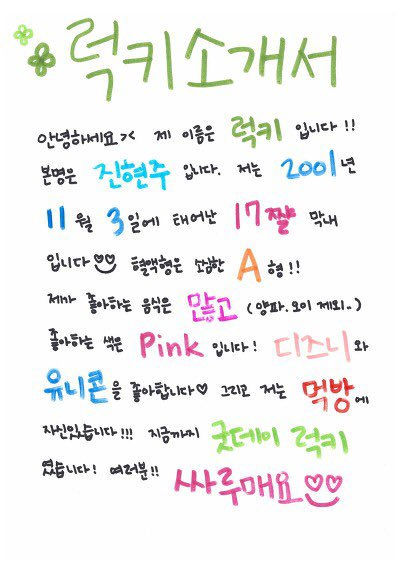 럭키소개서
안녕하세요>< 제 이름은 럭키 입니다!!
본명은 진현주 입니다. 저는 2001년
11월 3일에 태어난 17짤 막내
입니다 혈액형은 소심한 A형!!
제가 좋아하는 음식은 많고 (양파.오이 제외..)
좋아하는 색은 Pink 입니다! 디즈니와
유니콘을 좋아합니다♡ 그리고 저는 먹방에
자신있습니다!!! 지금까지 굿데이 럭키
였습니다! 여러분!! 싸루매요